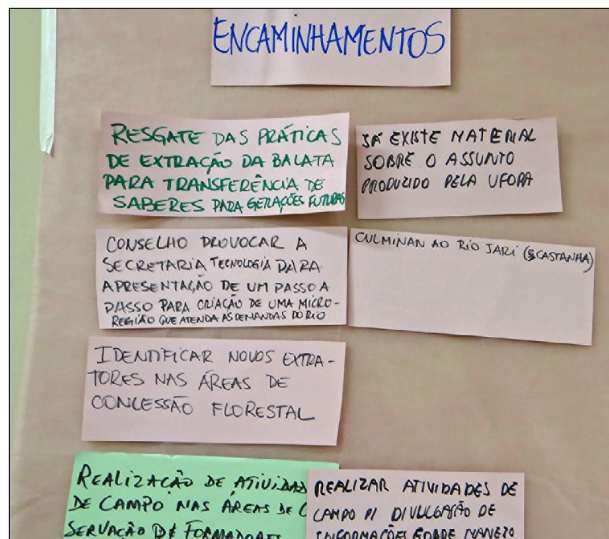 ENCAMINHAMENTOS
RESGATE DAS PRÁTICAS
DE EXTRAÇÃO DA BALATA
PARA TRANSFERÊNCIA DE
SABERES PARA GERAÇÕES FUTURAS
JÁ EXISTE MATERIAL
SOBRE O ASSUNTO
PRODUZIDO PELA UFOPA
CONSELHO PROVOCAR A
SECRETARIA TECNOLOGIA PARA
APRESENTAÇÃO DE UM PASSO A
PASSO PARA CRIAÇÃO DE UMA MICRO-
REGIÃO QUE ATENDA AS DEMANDAS DO RIO
CULMINAN AO RIO JARI (CASTANHA)
IDENTIFICAR NOVOS EXTRA-
TORES NAS ÁREAS DE
CONCESSÃO FLORESTAL
REALIZAÇÃO DE ATIVIDAD
DE CAMPO NAS ÁREAS DE C
SERVAÇÃO DE FORMADORES
REALIZAR ATIVIDADES DE
CAMPO P/ DIVULGAÇÃO DE
INFORMAÇÕES SOBRE MANEJO